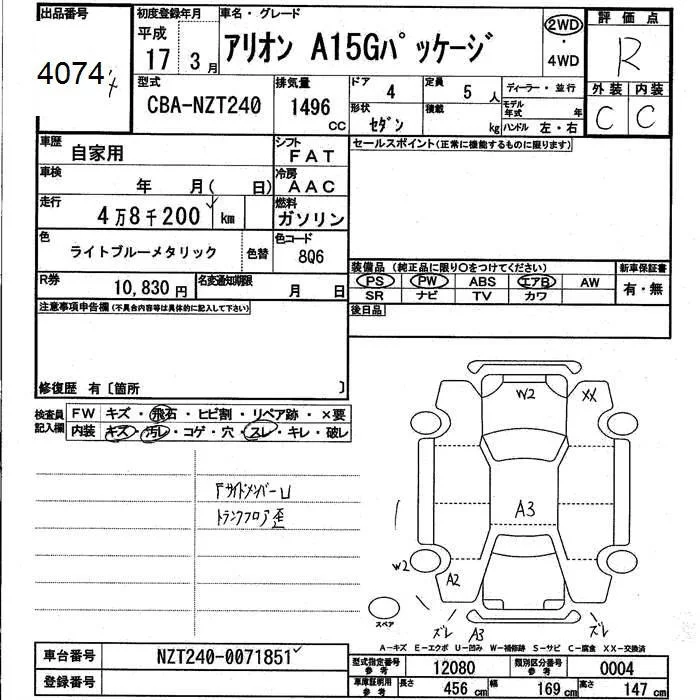 出品番号
4074
初度登録年月
平成
17 3月
車名・グレード
アリオン A15Gパッケージ
2WD
・
4WD
評価点
R
外装 内装
C C
型式
CBA-NZT240
排気量
1496
CC
ドア
4
定員
5 人
ディーラー・並行
形状
セダン
積載
kg
モデル年式 年
ハンドル 左・右
車歴
自家用
シフト
FAT
セールスポイント(正常に機能するものに限ります)
車検
年 月( 日)
冷房
AAC
走行
4万8千200 km
燃料
ガソリン
色
ライトブルーメタリック
色替
色コード
8Q6
R券
10,830円
名変通知期限
月 日
装備品(純正品に限り○をつけてください)
新車保証書
PS PW ABS エアB AW
有・無
SR ナビ TV カワ
後日品
注意事項申告欄(不具合内容等は具体的に記入して下さい)
修復歴 有〔箇所 〕
検査員
記入欄
FW キズ・飛石・ヒビ割・リペア跡・×要
内装 キズ・汚レ・コゲ・穴・スレ・キレ・破レ
Fサイドメンバー凹
トランクフロア歪
W2
XX
A3
W2
A2
スペア
ズレ
A3
ズレ
A-キズ E-エクボ U-凹み W-補修跡 S-サビ C-腐食 XX-交換済
車台番号
NZT240-0071851
登録番号
型式指定番号
参考
12080
類別区分番号
参考
0004
車庫証明用
参考
長さ
456cm
幅
169cm
高さ
147cm